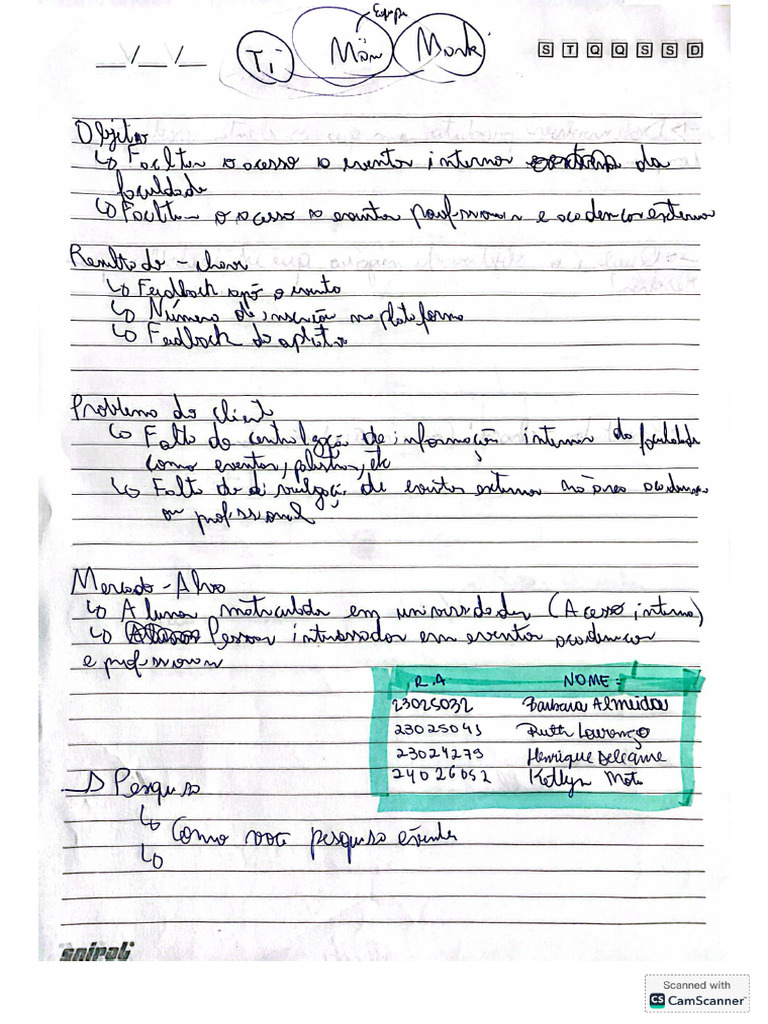 Equipe
Ti Mark
__/__/__ S T Q Q S S D
Objetivo
↳ Facilitar o acesso a eventos internos da
faculdade
↳ Facilitar o acesso a eventos profissionais e acadêmicos externos
Resultado-chave
↳ Feedback após o evento
↳ Número de inscrição na plataforma
↳ Feedback do aplicativo
Problema do client
↳ Falta de centralização de informação interna da faculdade
como eventos, palestras, etc
↳ Falta de divulgação de eventos externos na área acadêmica
ou profissional
Mercado-Alvo
↳ Alunos matriculados em universidades (Acesso interno)
↳ Pessoas interessadas em eventos acadêmicos
e profissionais
R.A NOME:
23025032 Barbara Almeida
23025041 Ruth Lourenço
23024279 Henrique
24026052 Ketlyn Mota
→ Pesquisa
↳ Como você pesquisa eventos
↳
spiral
Scanned with
CS CamScanner